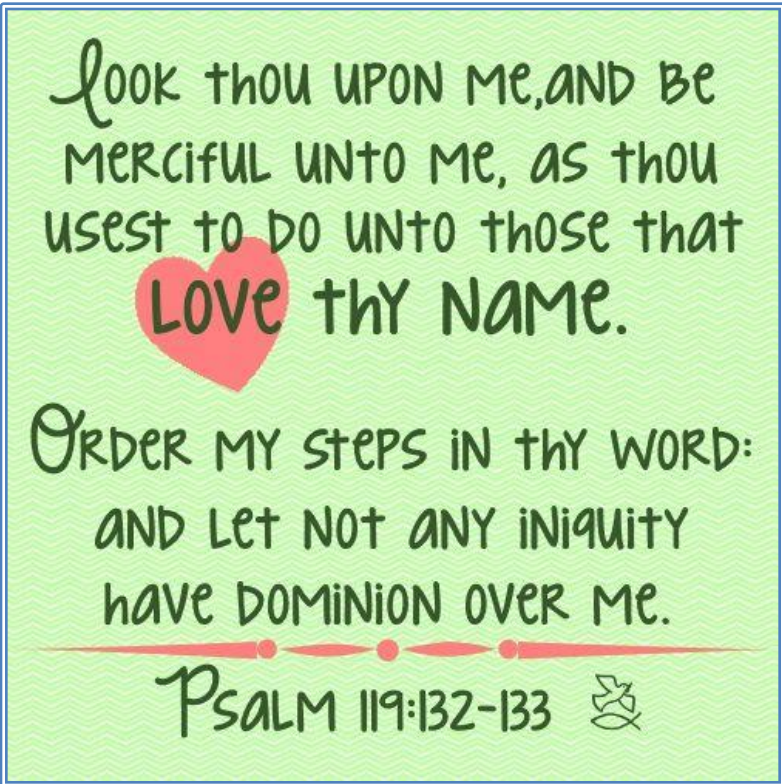 Look thou upon me,and be
merciful unto me, as thou
usest to do unto those that
love thy name.
Order my steps in thy word:
and let not any iniquity
have dominion over me.
Psalm 119:132-133